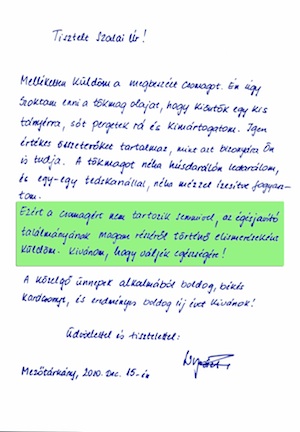 Tisztelt Szalai Úr!
Mellékelten küldöm a megbeszélt csomagot. Én úgy
szoktam enni a tökmag olajat, hogy kiöntök egy kis
tányérra, sót pergetek rá és kimártogatom. Igen
értékes összetevőket tartalmaz, mint azt bizonyára Ön
is tudja. A tökmagot néha húsdarálón ledarálom,
és egy-egy teáskanállal, néha mézzel ízesítve fogyasz-
tom.
Ezért a csomagért nem tartozik semmivel, az égésjavító
találmányának magam részéről történő elismeréseként
küldöm. Kívánom, hogy váljék egészségére!
A közelgő ünnepek alkalmából boldog, békés
karácsonyt, és eredményes boldog új évet kívánok!
Üdvözlettel és tisztelettel:
Mezőtárkány, 2010. dec. 15-én